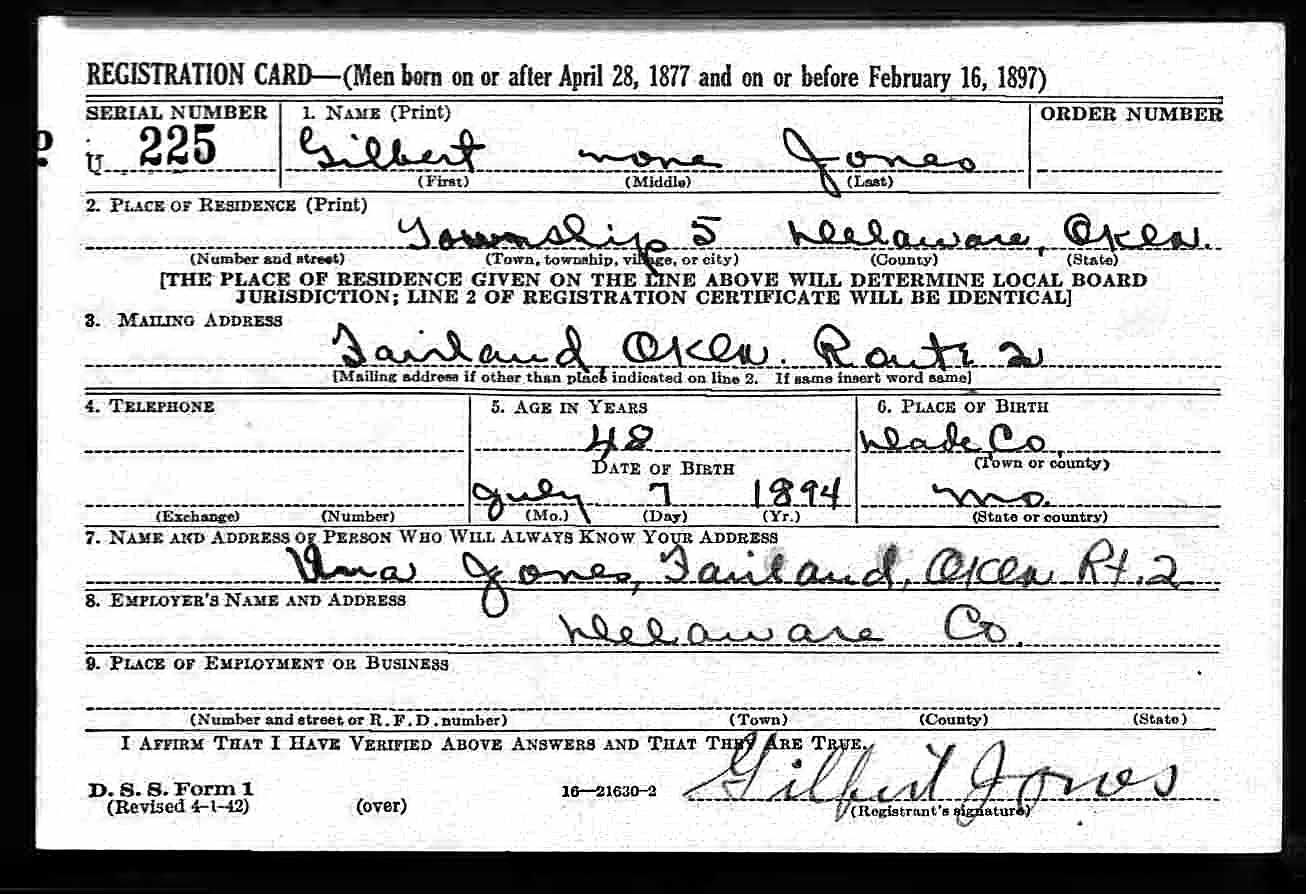 REGISTRATION CARD—(Men born on or after April 28, 1877 and on or before February 16, 1897)
SERIAL NUMBER 1. NAME (Print) ORDER NUMBER
U 225 Gilbert none Jones
(First) (Middle) (Last)
2. PLACE OF RESIDENCE (Print)
Township 5 Delaware, Okla.
(Number and street) (Town, township, village, or city) (County) (State)
[THE PLACE OF RESIDENCE GIVEN ON THE LINE ABOVE WILL DETERMINE LOCAL BOARD
JURISDICTION; LINE 2 OF REGISTRATION CERTIFICATE WILL BE IDENTICAL]
3. MAILING ADDRESS
Fairland Okla. Route 2
[Mailing address if other than place indicated on line 2. If same insert word same]
4. TELEPHONE 5. AGE IN YEARS 6. PLACE OF BIRTH
48 Dade Co.
DATE OF BIRTH (Town or county)
July 7 1894 Mo.
(Exchange) (Number) (Mo.) (Day) (Yr.) (State or country)
7. NAME AND ADDRESS OF PERSON WHO WILL ALWAYS KNOW YOUR ADDRESS
Jones, Fairland, Okla Rt. 2
8. EMPLOYER'S NAME AND ADDRESS
Delaware Co.
9. PLACE OF EMPLOYMENT OR BUSINESS
(Number and street or R. F. D. number) (Town) (County) (State)
I AFFIRM THAT I HAVE VERIFIED ABOVE ANSWERS AND THAT THEY ARE TRUE.
D. S. S. Form 1
(Revised 4-1-42) (over) 16—21630-2 Gilbert Jones
(Registrant's signature)